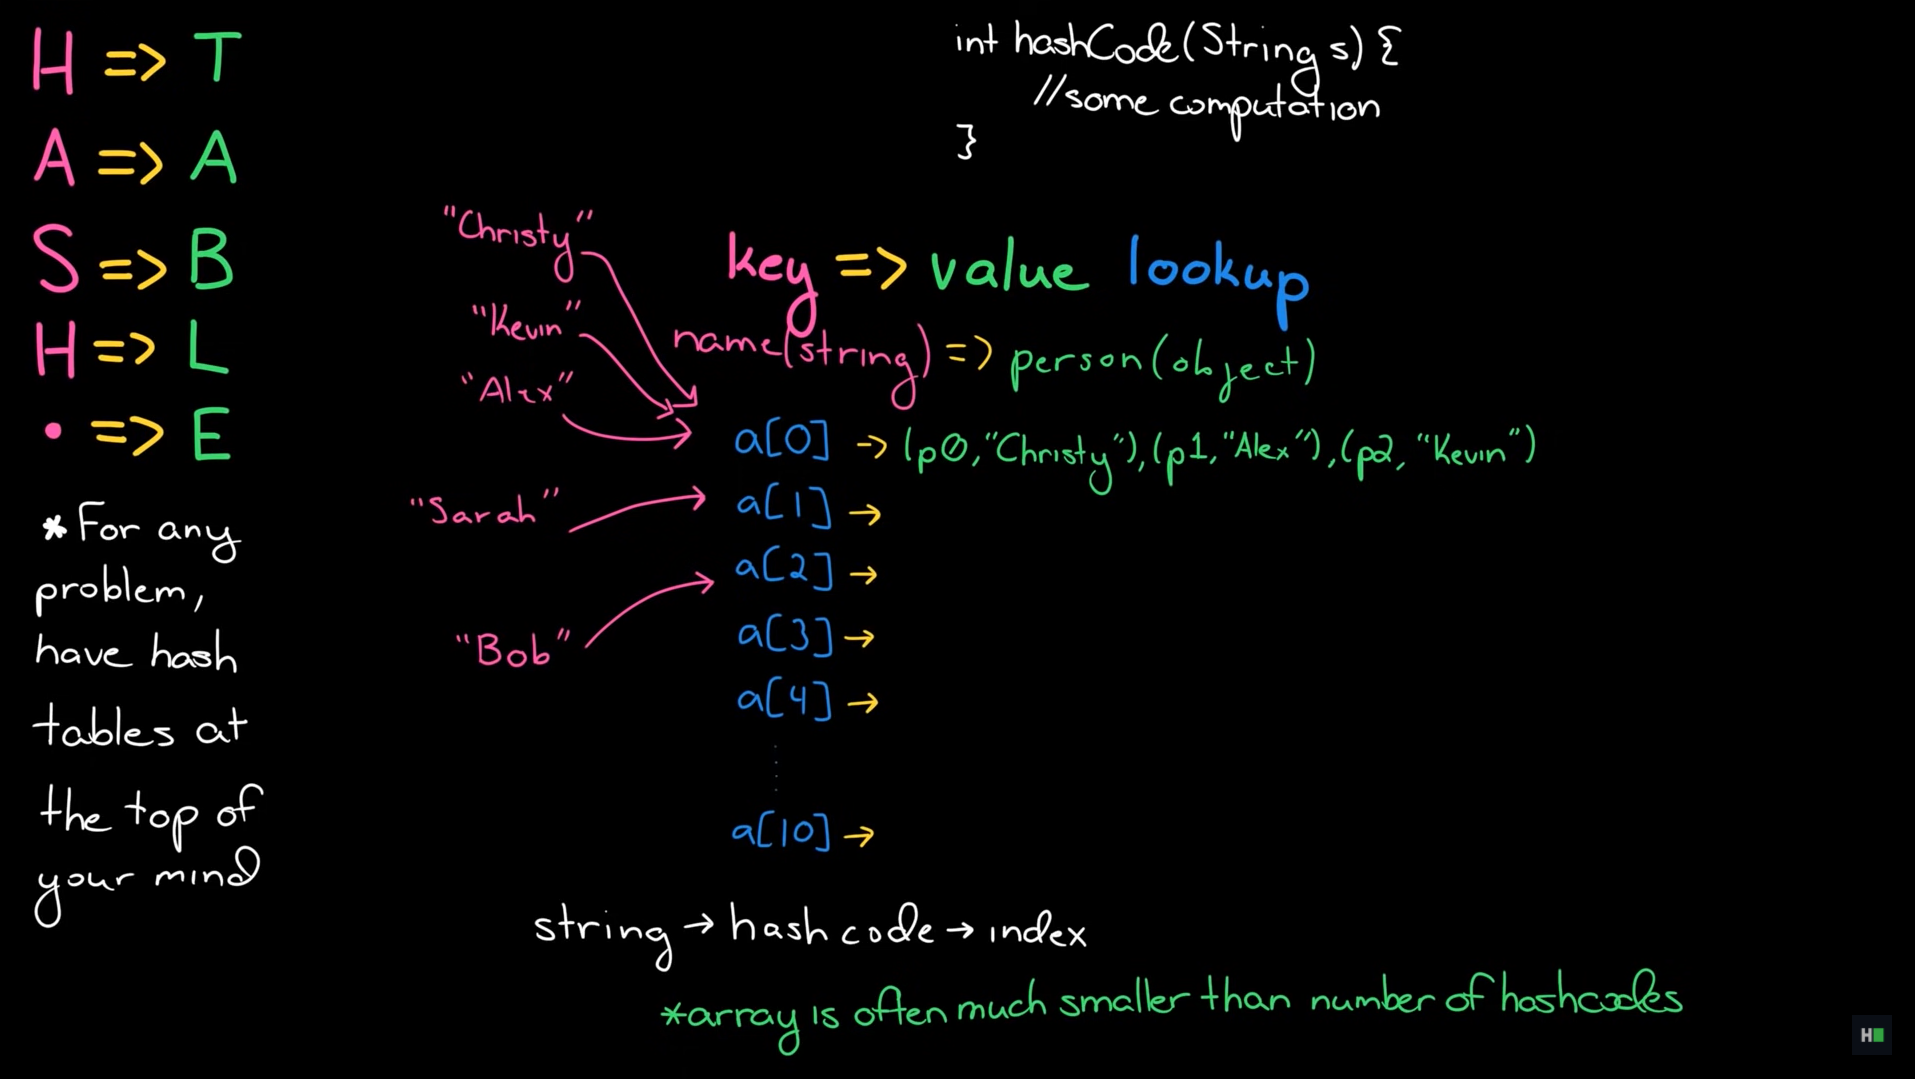 H => T
A => A
S => B
H => L
• => E
*For any
problem,
have hash
tables at
the top of
your mind
int hashCode(String s) {
//some computation
}
key => value lookup
name(string) => person(object)
"Christy"
"Kevin"
"Alex"
"Sarah"
"Bob"
a[0] → (p0,"Christy"),(p1,"Alex"),(p2,"Kevin")
a[1] →
a[2] →
a[3] →
a[4] →
a[10] →
string → hash code → index
*array is often much smaller than number of hashcodes
H